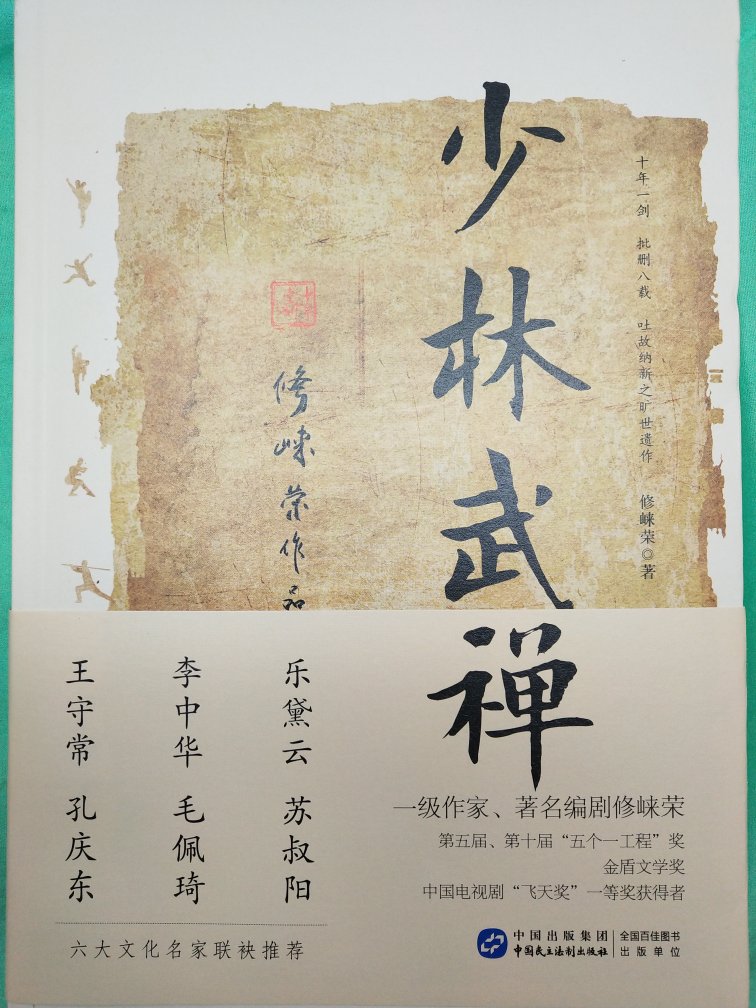 少林武禅
十年一剑 批删八载 吐故纳新之旷世遗作 修崃荣◎著
修崃荣作品
乐黛云 苏叔阳
李中华 毛佩琦
王守常 孔庆东
六大文化名家联袂推荐
一级作家、著名编剧修崃荣
第五届、第十届“五个一工程”奖
金盾文学奖
中国电视剧“飞天奖”一等奖获得者
中国出版集团
中国民主法制出版社
全国百佳图书
出版单位